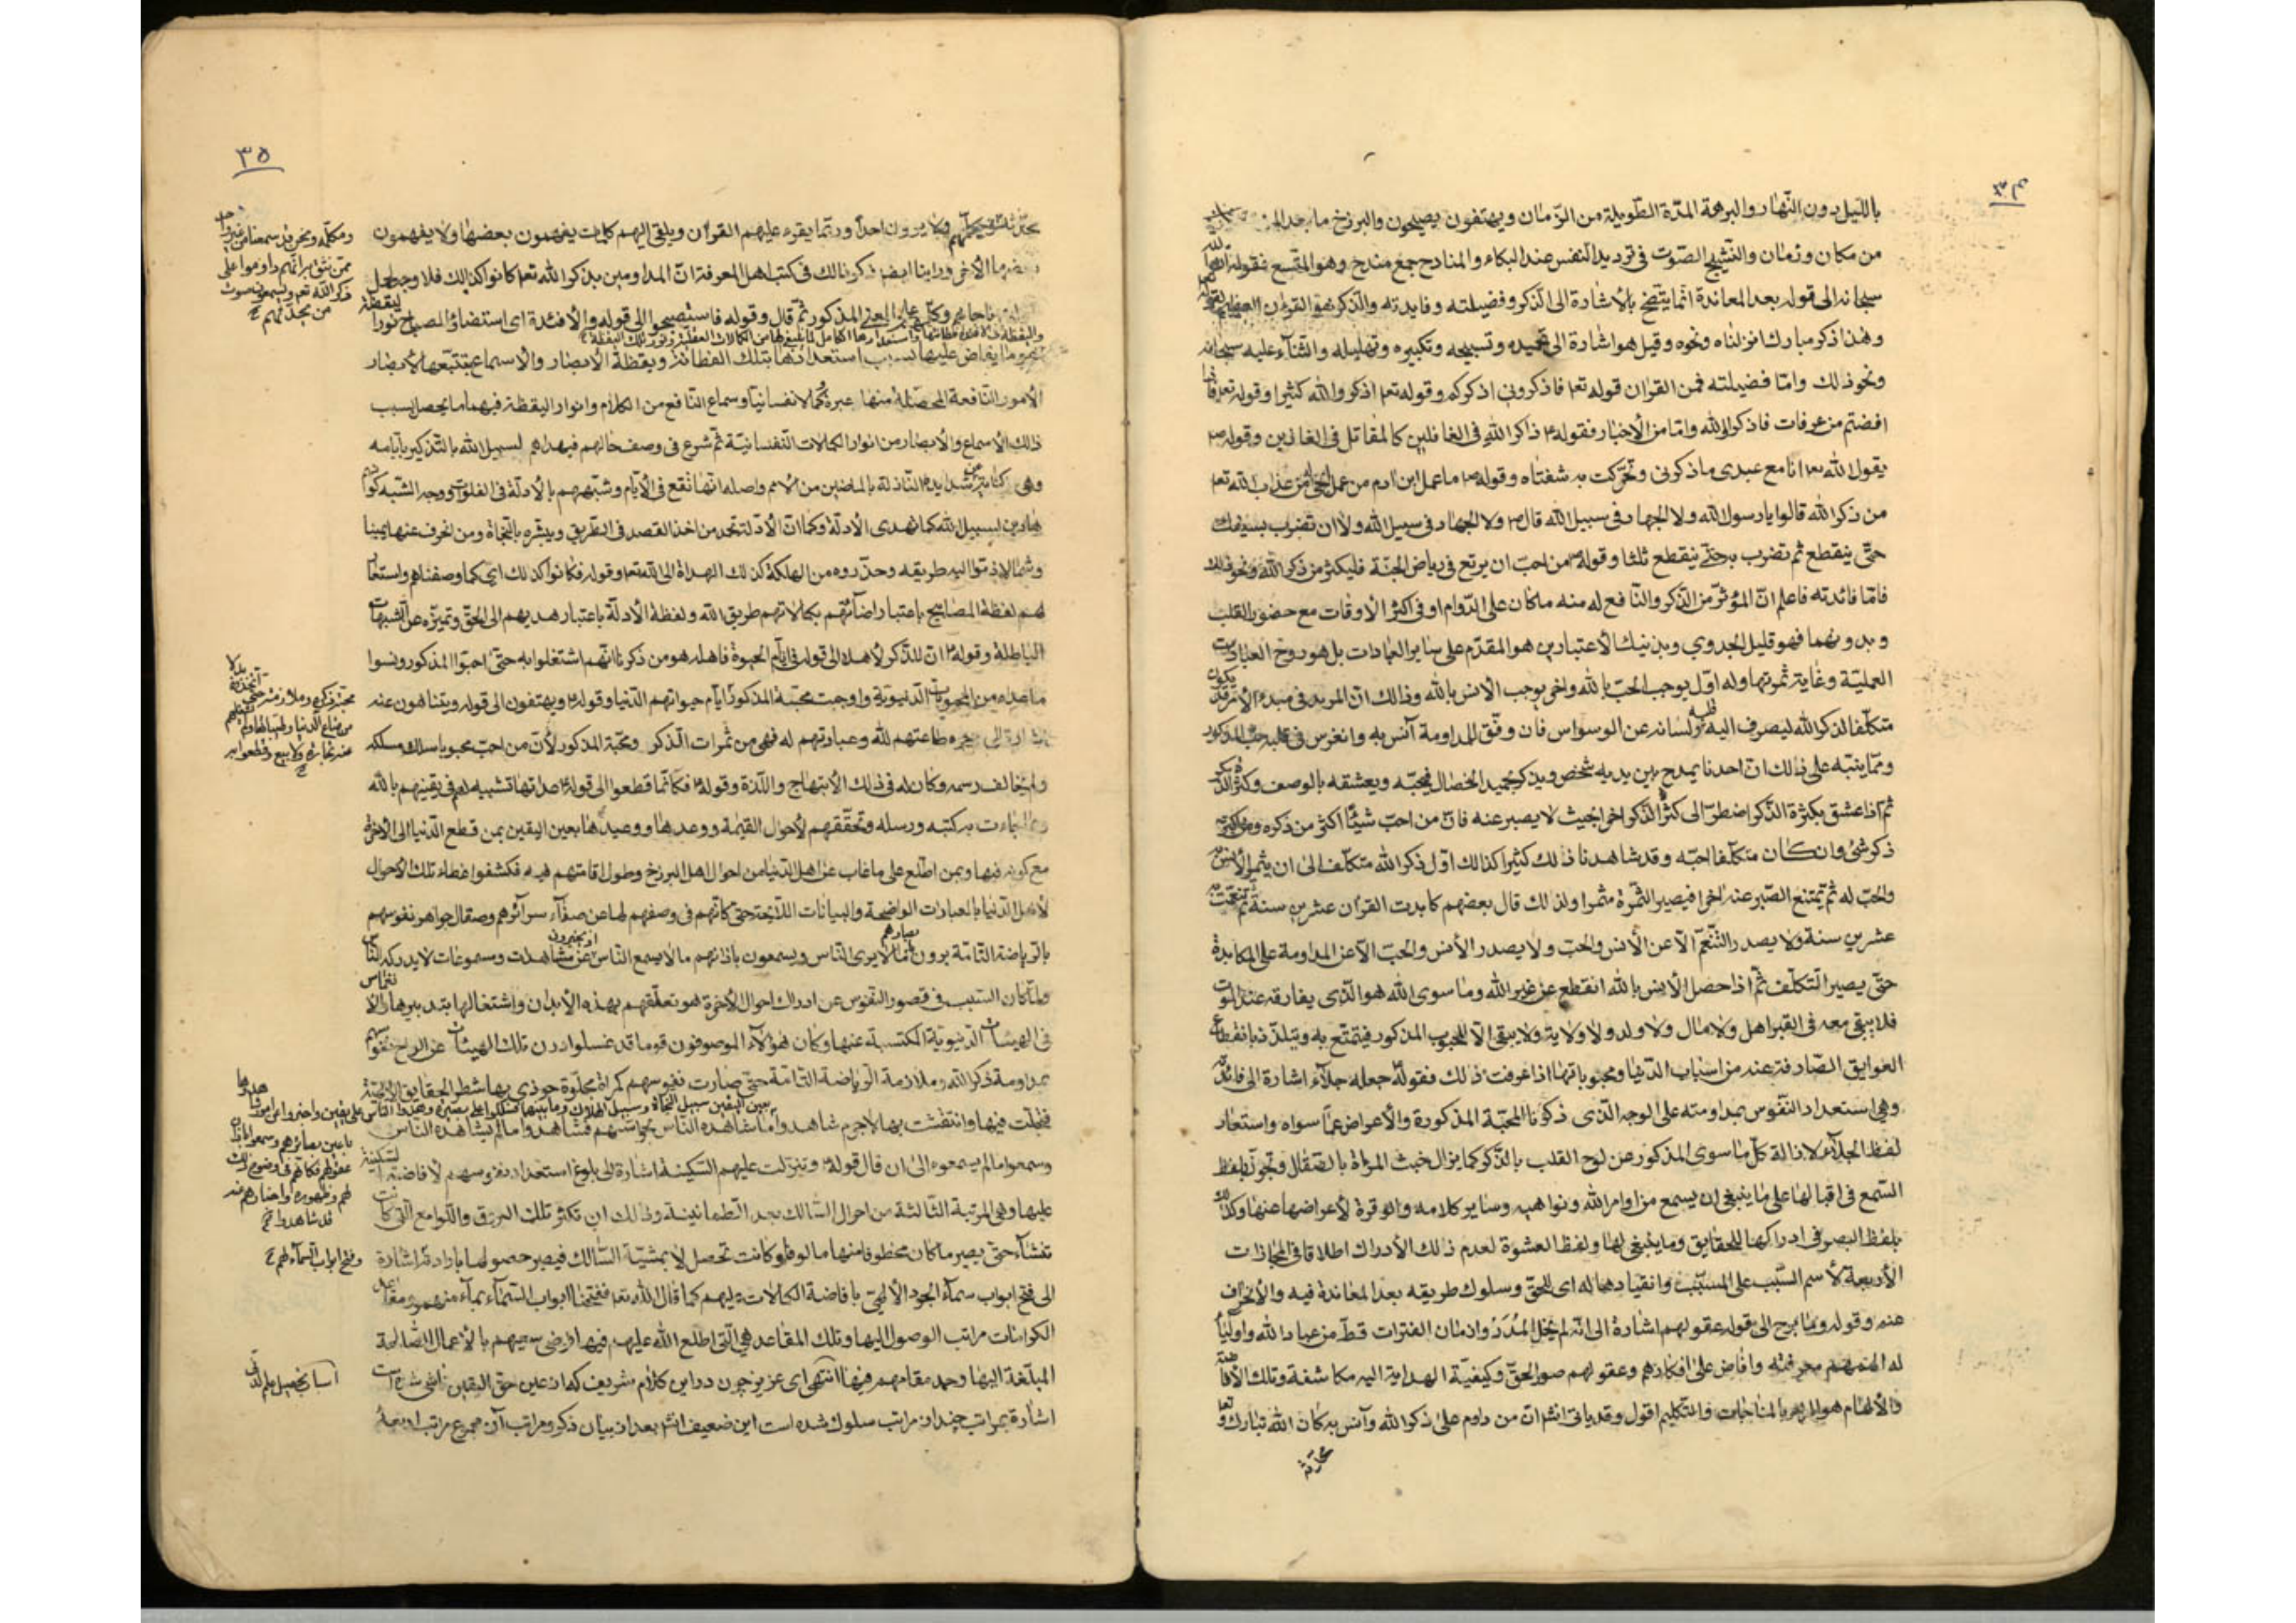 ٣٤
بالليل دون النّهار والبرهة المدّة الطّويلة من الزّمان ويهتفون يصيحون والبرزخ ما بعد الموت
من مكان وزمان والنّشيج الصّوت فى ترديد النفس عند البكاء والمنادح جمع مندح وهو المتّسع فقوله انّ الله
سبحانه الى قوله بعد المعاندة انّما يتّضح بالأشارة الى الذّكر وفضيلته وفايدته والذّكر هو القرءان العظيم لقوله تعم
وهٰذا ذكر مبارك انزلناه ونحوه وقيل هو اشارة الى تحميده وتسبيحه وتكبيره وتهليله والثّنآء عليه سبحانه
ونحو ذلك وامّا فضيلته فمن القرءان قوله تعم فاذكرونى اذكركم وقوله تعم اذكروا الله كثيرا وقوله تعم فاذا
افضتم من عرفات فاذكروا الله وامّا من الأخبار فقوله ص ذاكر الله فى الغافلين كالمقاتل فى الغازين وقوله ص
يقول الله تعم انا مع عبدى ماذكرنى وتحرّكت بى شفتاه وقوله ص ما عمل ابن ادم من عمل انجى من عذاب الله تعم
من ذكر الله قالوا يا رسول الله ولا الجهاد فى سبيل الله قال ص ولا الجهاد فى سبيل الله ولا ان تضرب بسيفك
حتّى ينقطع ثم تضرب به حتّى ينقطع ثلثا وقوله ص من احبّ ان يرتع فى رياض الجنّة فليكثر من ذكر الله ونحو ذلك
فامّا فائدته فاعلم انّ المؤثّر من الذّكر والنّافع له منه ماكان على الدّوام او فى اكثر الأوقات مع حضور القلب
وبدونهما فهو قليل الجدوي وبذينك الأعتبارين هو المقدّم على ساير العبادات بل هو روح العبادات
العمليّة وغاية ثمرتها وله اوّل يوجب الحبّ بالله واخر يوجب الأنس بالله وذالك انّ المريد فى مبدء الأمر قد يكون
متكلّفا لذكر الله ليصرف اليه قلبه ولسانه عن الوسواس فان وفّق للمداومة آنس به وانغرس فى قلبه حبّ المذكور
وممّا ينبّه على ذالك انّ احدنا يمدح بين يديه شخص ويذكر بحميد الخصال فيحبّه ويعشقه بالوصف وكثرة الذّكر
ثم اذا عشق بكثرة الذّكر اضطرّ الى كثرة الذّكر اخرا بحيث لا يصبر عنه فانّ من احبّ شيئًا اكثر من ذكره ومن اكثر
ذكر شئ وان كان متكلّفا احبّه وقد شاهدنا ذلك كثيرا كذالك اوّل ذكر الله متكلّف الى ان يثمر الأنس به
والحبّ له ثم يمتنع الصّبر عنه اخرا فيصير الثّمرة مثمرا ولذلك قال بعضهم كابدت القرءان عشرين سنة ثم تنعّمت به
عشرين سنة ولا يصدر التّنعّم الّا عن الأنس والحبّ ولا يصدر الأنس والحبّ الّا عن المداومة على المكابدة
حتّى يصير التّكلّف ثمّ اذا حصل الأنس بالله انقطع عن غير الله وما سوى الله هو الّذى يفارقه عند الموت
فلا يبقى معه فى القبر اهل ولا مال ولا ولد ولا ولاية ولا يبقى الّا المحبوب المذكور فيتمتّع به ويتلذّذ بانقطاع
العوايق الصّارفة عنه من اسباب الدّنيا ومحبوباتها اذا عرفت ذلك فقوله جعله جلآء اشارة الى فائدته
وهي استعداد النّفوس بمداومته على الوجه الّذى ذكرنا المحبّة المذكورة والأعراض عمّا سواه واستعار
لفظ الجلآء لازالة كلّ ما سوى المذكور عن لوح القلب بالذّكر كما يزال خبث المرءاة بالصّقال وتجوّز بلفظ
السّمع فى اقبالها على ما ينبغى ان يسمع من اوامر الله ونواهيه وساير كلامه والوقرة لأعراضها عنها وكذلك
بلفظ البصر فى ادراكها للحقايق وما ينبغى لها ولفظ العشوة لعدم ذالك الأدراك اطلاقا فى المجازات
الأربعة لأسم السّبب على المسبّب وانقيادها له اى للحقّ وسلوك طريقه بعد المعاندة فيه والأنحراف
عنه وقوله وما برح الى قوله عقولهم اشارة الى انّه لم يخل المدد وازمان الفترات قطّ من عباد الله واوليآء
له الهمهم معرفته وافاض على افكارهم وعقولهم صور الحقّ وكيفيّة الهداية اليه مكاشفة وتلك الأفاضة
والألهام هو المراد بالمناجات والتّكليم اقول وقد ياتى انشا انّ من داوم على ذكر الله وآنس به كان الله تبارك وتعا
محدّثه
٣٥
ولا يرون احداً وربّما يقرء عليهم القرءان ويلقى اليهم كلمات يفهمون بعضها ولا يفهمون
بعضها الأخر وراينا ايضا ذكر ذالك فى كتب اهل المعرفة انّ المداومين بذكر الله تعم كانوا كذالك فلا وجه لحمل
المعنى المذكور ثمّ قال وقوله فاستصبحوا الى قوله والأفئدة اى استضاؤا بمصباح نور اليقظة
واليقظة فى الافئدة فطانتها واستعدادها الكامل لما ينبغى لها من الكمالات العقليّة ونور تلك اليقظة
هو ما يفاض عليها بسبب استعدادتها بتلك الفطانة ويقظة الأبصار والأسماع بتتبّعها لأبصار
الأمور النّافعة المحصّلة منها عبرة وكمالا نفسانيّا وسماع النّافع من الكلام وانوار اليقظة فيهما ما يحصل بسبب
ذلك الأسماع والأبصار من انوار الكمالات النّفسانيّة ثمّ شرع فى وصف حالهم فيهداهم لسبيل الله بالتّذكير بايّامه
وهى كناية عن شدايده النّازلة بالماضين من الأمم واصله انّها تقع فى الأيّام وشبّههم بالأدلّة فى الفلوات ووجه الشّبه كونهم
هادين لسبيل الله كما تهدى الأدلّة وكما انّ الأدلّة تحمد من اخذ القصد فى الطّريق ويبشّره بالنّجاة ومن انحرف عنها يمينا
وشمالا ذمّوا اليه طريقه وحذّروه من الهلكة كذلك الهداة الى الله تعم وقوله فكانوا كذلك اى كما وصفناهم واستعار
لهم لفظة المصابيح باعتبار اضائتهم بكمالاتهم طريق الله ولفظة الأدلّة باعتبار هديهم الى الحقّ وتميزه عن الشّبهات
الباطلة وقوله انّ للذّكر لأهلا الى قوله ايّام الحيوة فاهله هو من ذكرنا انّهم اشتغلوا به حتّى احبّوا المذكور ونسوا
ما عداه من المحبوبات الدّنيوية واوجبت محبّة المذكور ايّام حياتهم الدّنيا وقوله ويهتفون الى قوله ويتناهون عنه
طاعتهم لله وعبارتهم له فهى من ثمرات الذّكر ومحبّة المذكور لأنّ من احبّ محبوبا سلك مسلكه
ولم يخالف رسمه وكان له فى ذلك الأبتهاج واللّذة وقوله فكانّما قطعوا الى قوله عداتها تشبيه لهم فى يقينهم بالله
وبما جاءت به كتبه ورسله وتحقّقهم لأحوال القيمة ووعدها ووعيدها بعين اليقين بمن قطع الدّنيا الى الأخرة
مع كونه فيها وبمن اطّلع على ما غاب عن اهل الدّنيا من احوال اهل البرزخ وطول اقامتهم فيه فكشفوا غطاء تلك الأحوال
لأهل الدّنيا بالعبارات الواضحة والبيانات اللّايحة حتّى كانّهم فى وصفهم لها عن صفآء سرآئرهم وصقال جواهر نفوسهم
بالرّياضة التّامّة يرون بابصارهم مالا يرى النّاس ويسمعون باذانهم مالا يسمع النّاس اذ يخبرون عن مشاهدات ومسموعات لا يدركه النّاس
ولمّا كان السّبب فى قصور النّفوس عن ادراك احوال الأخرة هو تعلّقهم بهذه الأبدان واشتغالها بتدبيرها والانغماس
فى الهيئات الدّنيوية المكتسبة عنها وكان هؤلآء الموصوفون قوما قد غسلوا درن تلك الهيئات عن الواح نفوسهم
بمداومة ذكر الله وملازمة الرّياضة التّامّة حتّى صارت نفوسهم كمراة مجلوّة حوذى بها شطر الحقايق الالهيّة
فتجلّت فيها وانتقشت بها لاجرم شاهدوا بعين اليقين سبيل النّجاة وسبيل الهلاك وما بينهما فسلكوا على بصيرة وهدوا النّاس على يقين واخبروا عن امور شاهدوها
ما شاهده النّاس بحواسّهم فشاهدوا مالم يشاهده النّاس
وسمعوا مالم يسمعوه الى ان قال قوله وتنزلت عليهم السّكينة اشارة الى بلوغ استعداد نفوسهم لأفاضة السّكينة
عليها وهى المرتبة الثّالثة من احوال السّالك بعد الطّمانينة وذالك ان تكثر تلك البروق واللّوامع الّتى كانت
تغشاه حتّى يصير ما كان مخطوفا منها مالوفا وكانت تحصل لا بمشيّة السّالك فيصير حصولها بارادته اشارة
الى فتح ابواب سمآء الجود الألهى بافاضة الكمالات عليهم كما قال الله تعم ففتحنا ابواب السّمآء بمآء منهمر ومقاعد
الكرامات مراتب الوصول اليها وتلك المقاعد هى الّتى اطلع الله عليهم فيها فرضى سعيهم بالأعمال الصّالحة
المبلّغة اليها وحمد مقامهم فيها انتهى اى عزيز چون در اين كلام شريف كه از عين حقّ اليقين ناشى شده است
اشارة بمراتب چندان مراتب سلوك شده است اين ضعيف انشا بعد از بيان ذكر ومراتب آن مجموع مراتب اربعهٔ
باعين بصائرهم وسمعوا باذان
عقولهم
قد شاهدوا
وفتح ابواب السّمآء لهم